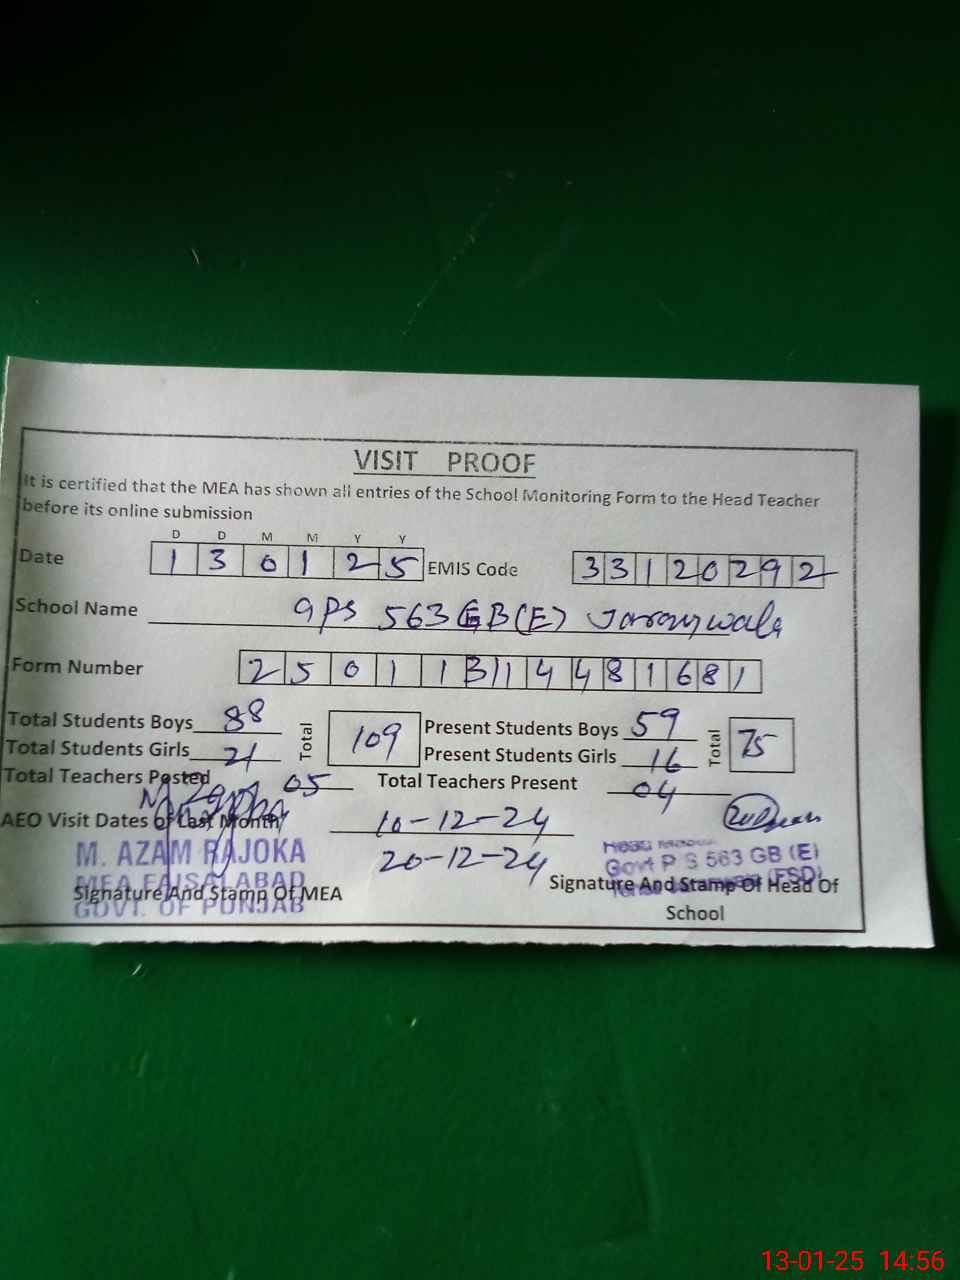 VISIT PROOF
It is certified that the MEA has shown all entries of the School Monitoring Form to the Head Teacher
before its online submission
D D M M Y Y
Date 1 3 0 1 2 5 EMIS Code 3 3 1 2 0 2 9 2
School Name GPS 563 GB(E) Jaranwala
Form Number 2 5 0 1 1 3 1 4 4 8 1 6 8 1
Total Students Boys 88 Total 109 Present Students Boys 59 Total 75
Total Students Girls 21 Present Students Girls 16
Total Teachers Posted 05 Total Teachers Present 04
AEO Visit Dates of Last Month 10-12-24
20-12-24
M. AZAM RAJOKA
MEA FAISALABAD
GOVT. OF PUNJAB
Signature And Stamp Of MEA
Govt P S 563 GB (E)
(FSD)
Signature And Stamp Of Head Of
School
13-01-25 14:56